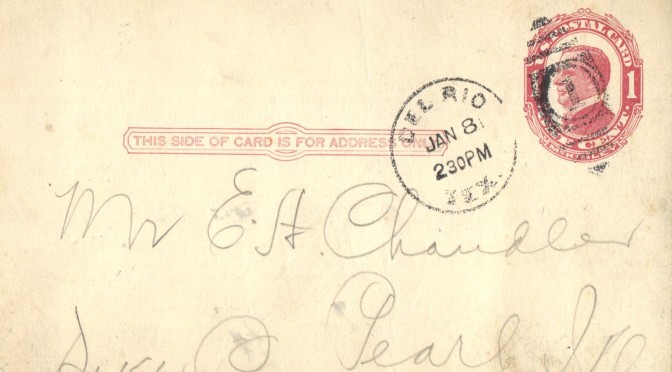 U.S. POSTAL CARD
1
DEL RIO
JAN 8
230PM
TEX.
THIS SIDE OF CARD IS FOR ADDRESS ONLY
Mr E. H. Chandler
Pearl